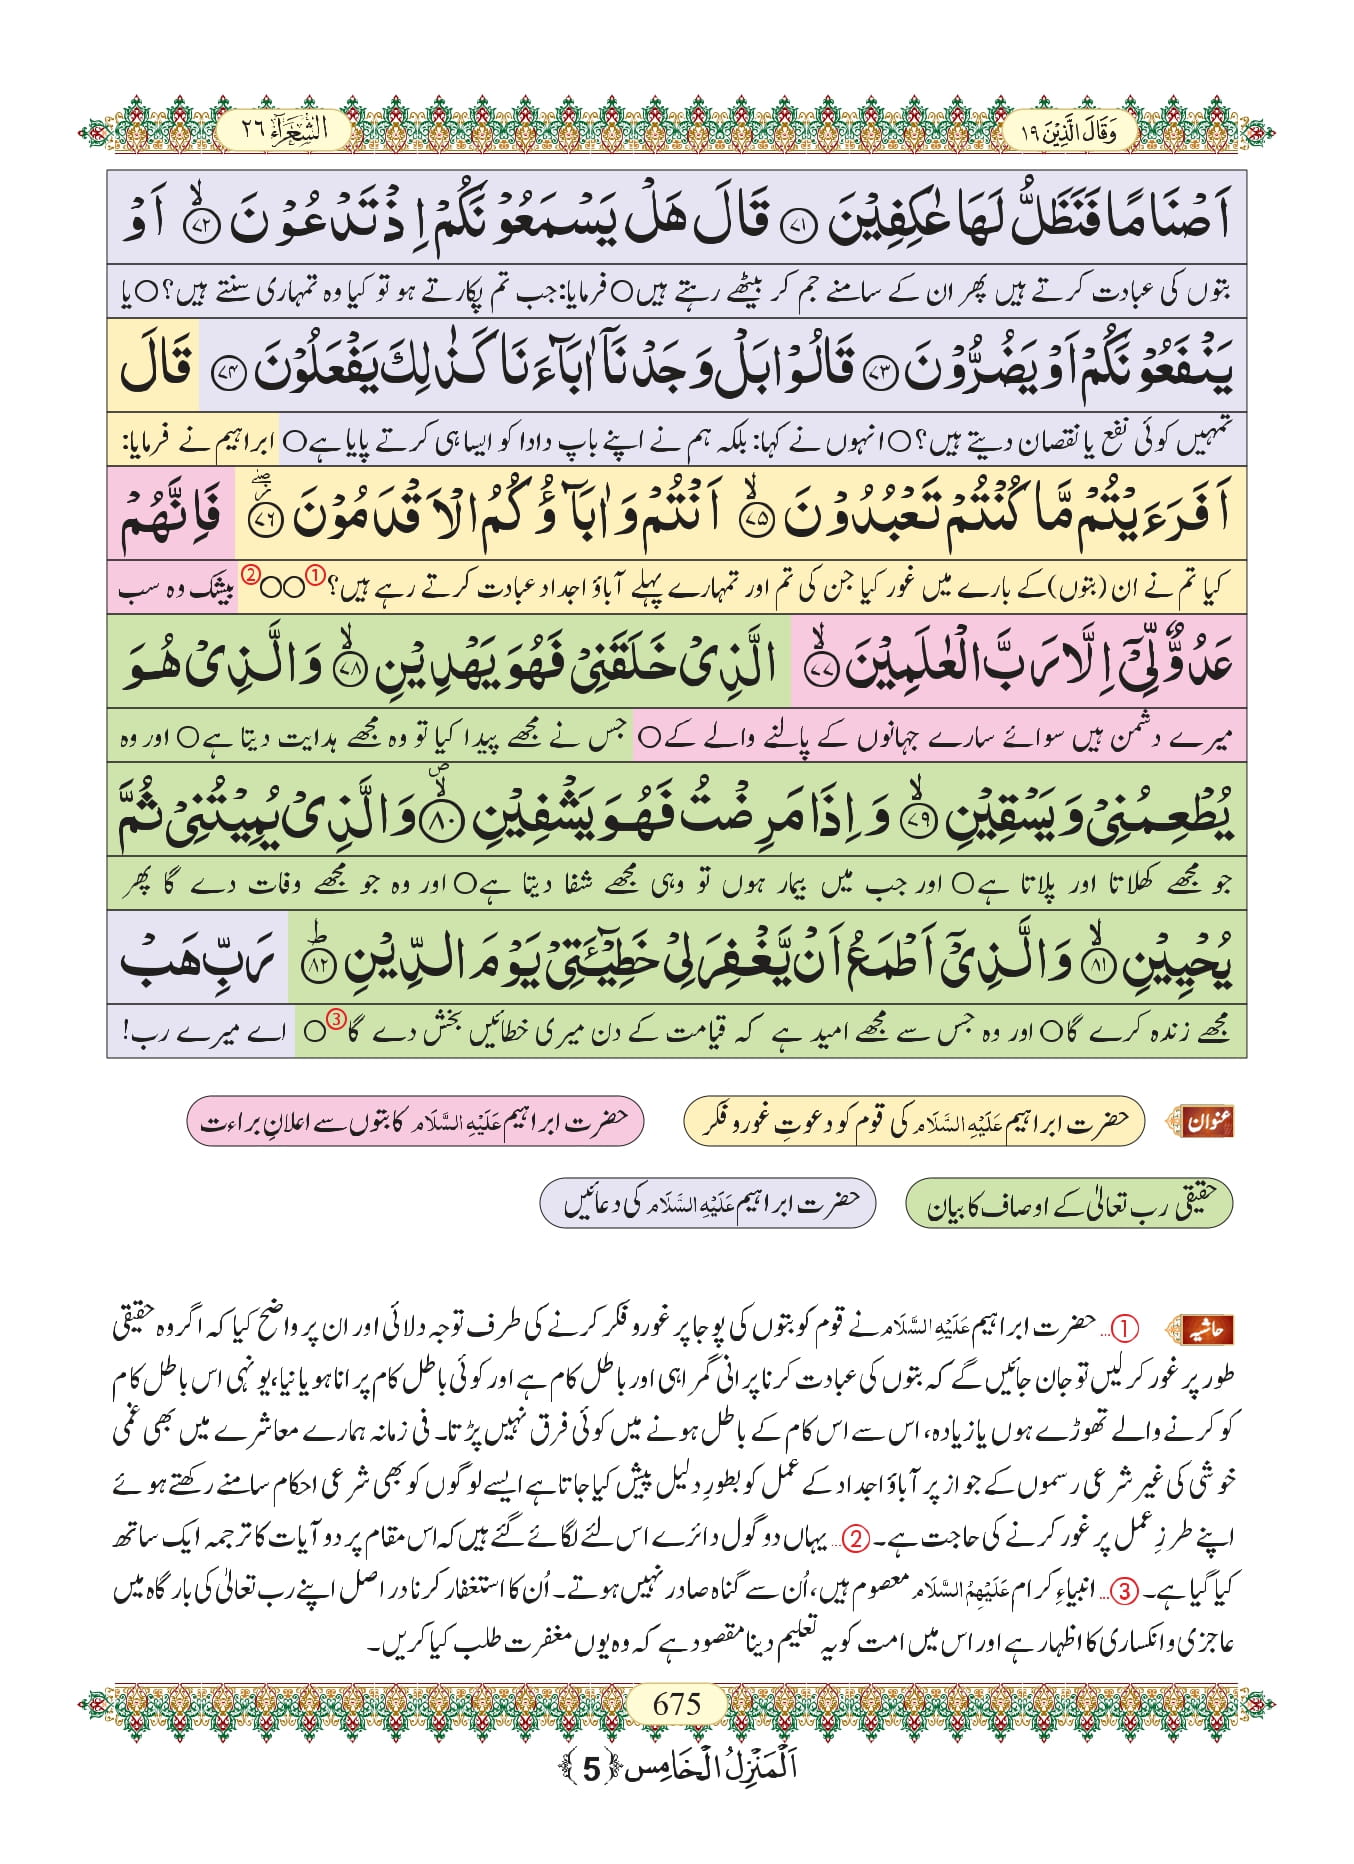 وَقَالَ الَّذِیْنَ ١٩
الشُّعَرَآء ٢٦
اَصْنَامًا فَنَظَلُّ لَهَا عٰكِفِیْنَ ﴿٧١﴾ قَالَ هَلْ یَسْمَعُوْنَكُمْ اِذْ تَدْعُوْنَ ۙ﴿٧٢﴾ اَوْ
بتوں کی عبادت کرتے ہیں پھر ان کے سامنے جم کر بیٹھے رہتے ہیں○ فرمایا: جب تم پکارتے ہو تو کیا وہ تمہاری سنتے ہیں؟○ یا
یَنْفَعُوْنَكُمْ اَوْ یَضُرُّوْنَ ﴿٧٣﴾ قَالُوْا بَلْ وَجَدْنَاۤ اٰبَآءَنَا كَذٰلِكَ یَفْعَلُوْنَ ﴿٧٤﴾ قَالَ
تمہیں کوئی نفع یا نقصان دیتے ہیں؟○ انہوں نے کہا: بلکہ ہم نے اپنے باپ دادا کو ایسا ہی کرتے پایا ہے○ ابراہیم نے فرمایا:
اَفَرَءَیْتُمْ مَّا كُنْتُمْ تَعْبُدُوْنَ ۙ﴿٧٥﴾ اَنْتُمْ وَ اٰبَآؤُكُمُ الْاَقْدَمُوْنَ ﴿٧٦﴾ فَاِنَّهُمْ
کیا تم نے ان (بتوں) کے بارے میں غور کیا جن کی تم اور تمہارے پہلے آباؤ اجداد عبادت کرتے رہے ہیں؟①○○② بیشک وہ سب
عَدُوٌّ لِّیْۤ اِلَّا رَبَّ الْعٰلَمِیْنَ ۙ﴿٧٧﴾ الَّذِیْ خَلَقَنِیْ فَهُوَ یَهْدِیْنِ ۙ﴿٧٨﴾ وَ الَّذِیْ هُوَ
میرے دشمن ہیں سوائے سارے جہانوں کے پالنے والے کے○ جس نے مجھے پیدا کیا تو وہ مجھے ہدایت دیتا ہے○ اور وہ
یُطْعِمُنِیْ وَ یَسْقِیْنِ ۙ﴿٧٩﴾ وَ اِذَا مَرِضْتُ فَهُوَ یَشْفِیْنِ ۪ۙ﴿٨٠﴾ وَ الَّذِیْ یُمِیْتُنِیْ ثُمَّ
جو مجھے کھلاتا اور پلاتا ہے○ اور جب میں بیمار ہوں تو وہی مجھے شفا دیتا ہے○ اور وہ جو مجھے وفات دے گا پھر
یُحْیِیْنِ ۙ﴿٨١﴾ وَ الَّذِیْۤ اَطْمَعُ اَنْ یَّغْفِرَ لِیْ خَطِیْٓــٴَـتِیْ یَوْمَ الدِّیْنِ ؕ﴿٨٢﴾ رَبِّ هَبْ
مجھے زندہ کرے گا○ اور وہ جس سے مجھے امید ہے کہ قیامت کے دن میری خطائیں بخش دے گا③○ اے میرے رب!
عنوان حضرت ابراہیم عَلَیْہِ السَّلَام کی قوم کو دعوتِ غور و فکر حضرت ابراہیم عَلَیْہِ السَّلَام کا بتوں سے اعلانِ براءت
حقیقی رب تعالیٰ کے اوصاف کا بیان حضرت ابراہیم عَلَیْہِ السَّلَام کی دعائیں
حاشیہ ①… حضرت ابراہیم عَلَیْہِ السَّلَام نے قوم کو بتوں کی پوجا پر غور و فکر کرنے کی طرف توجہ دلائی اور ان پر واضح کیا کہ اگر وہ حقیقی
طور پر غور کر لیں تو جان جائیں گے کہ بتوں کی عبادت کرنا پرانی گمراہی اور باطل کام ہے اور کوئی باطل کام پرانا ہو یا نیا، یونہی اس باطل کام
کو کرنے والے تھوڑے ہوں یا زیادہ، اس سے اس کام کے باطل ہونے میں کوئی فرق نہیں پڑتا۔ فی زمانہ ہمارے معاشرے میں بھی غمی
خوشی کی غیر شرعی رسموں کے جواز پر آباؤ اجداد کے عمل کو بطورِ دلیل پیش کیا جاتا ہے ایسے لوگوں کو بھی شرعی احکام سامنے رکھتے ہوئے
اپنے طرزِ عمل پر غور کرنے کی حاجت ہے۔ ②… یہاں دو گول دائرے اس لئے لگائے گئے ہیں کہ اس مقام پر دو آیات کا ترجمہ ایک ساتھ
کیا گیا ہے۔ ③… انبیاءِ کرام عَلَیْہِمُ السَّلَام معصوم ہیں، اُن سے گناہ صادر نہیں ہوتے۔ اُن کا استغفار کرنا در اصل اپنے رب تعالیٰ کی بارگاہ میں
عاجزی و انکساری کا اظہار ہے اور اس میں امت کو یہ تعلیم دینا مقصود ہے کہ وہ یوں مغفرت طلب کیا کریں۔
675
اَلْمَنْزِلُ الْخَامِس ﴿5﴾